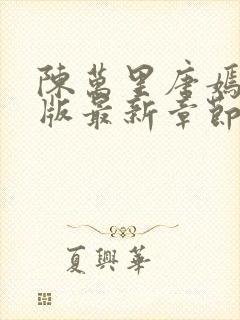 陳萬里唐嫣
版最新章節
夏興華